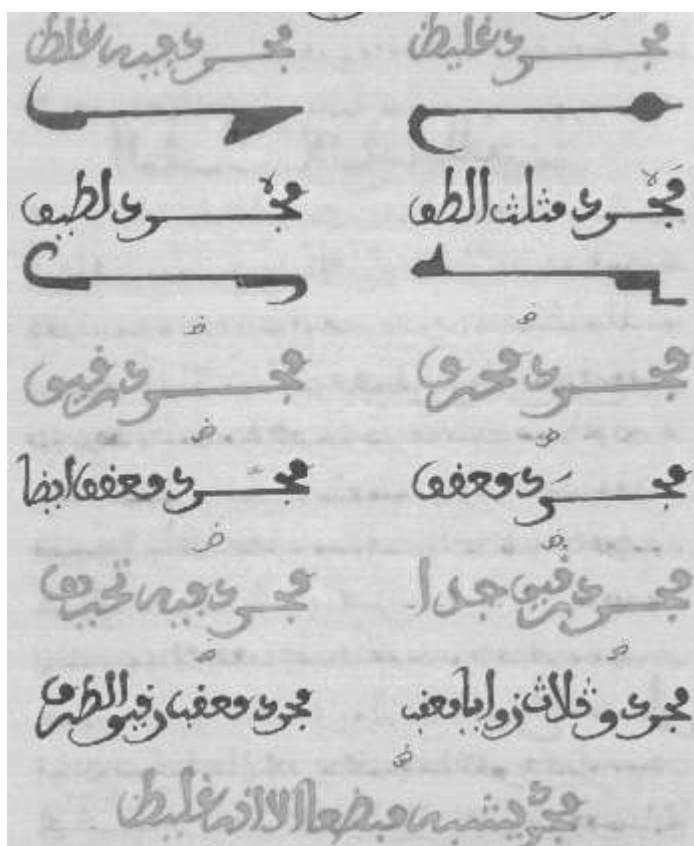 مجرد غليظ
مجرد فيه غلظ
مجرد مثلث الطف
مجرد لطيف
مجرد محرف
مجرد رقيق
مجرد معقف
مجرد معقف ايضا
مجرد رقيق جدا
مجرد فيه تحريف
مجرد وثلاث زوايا معقف
مجرد معقف رقيق الطرف
مجرد يشبه مبضعا الا انه غليظ